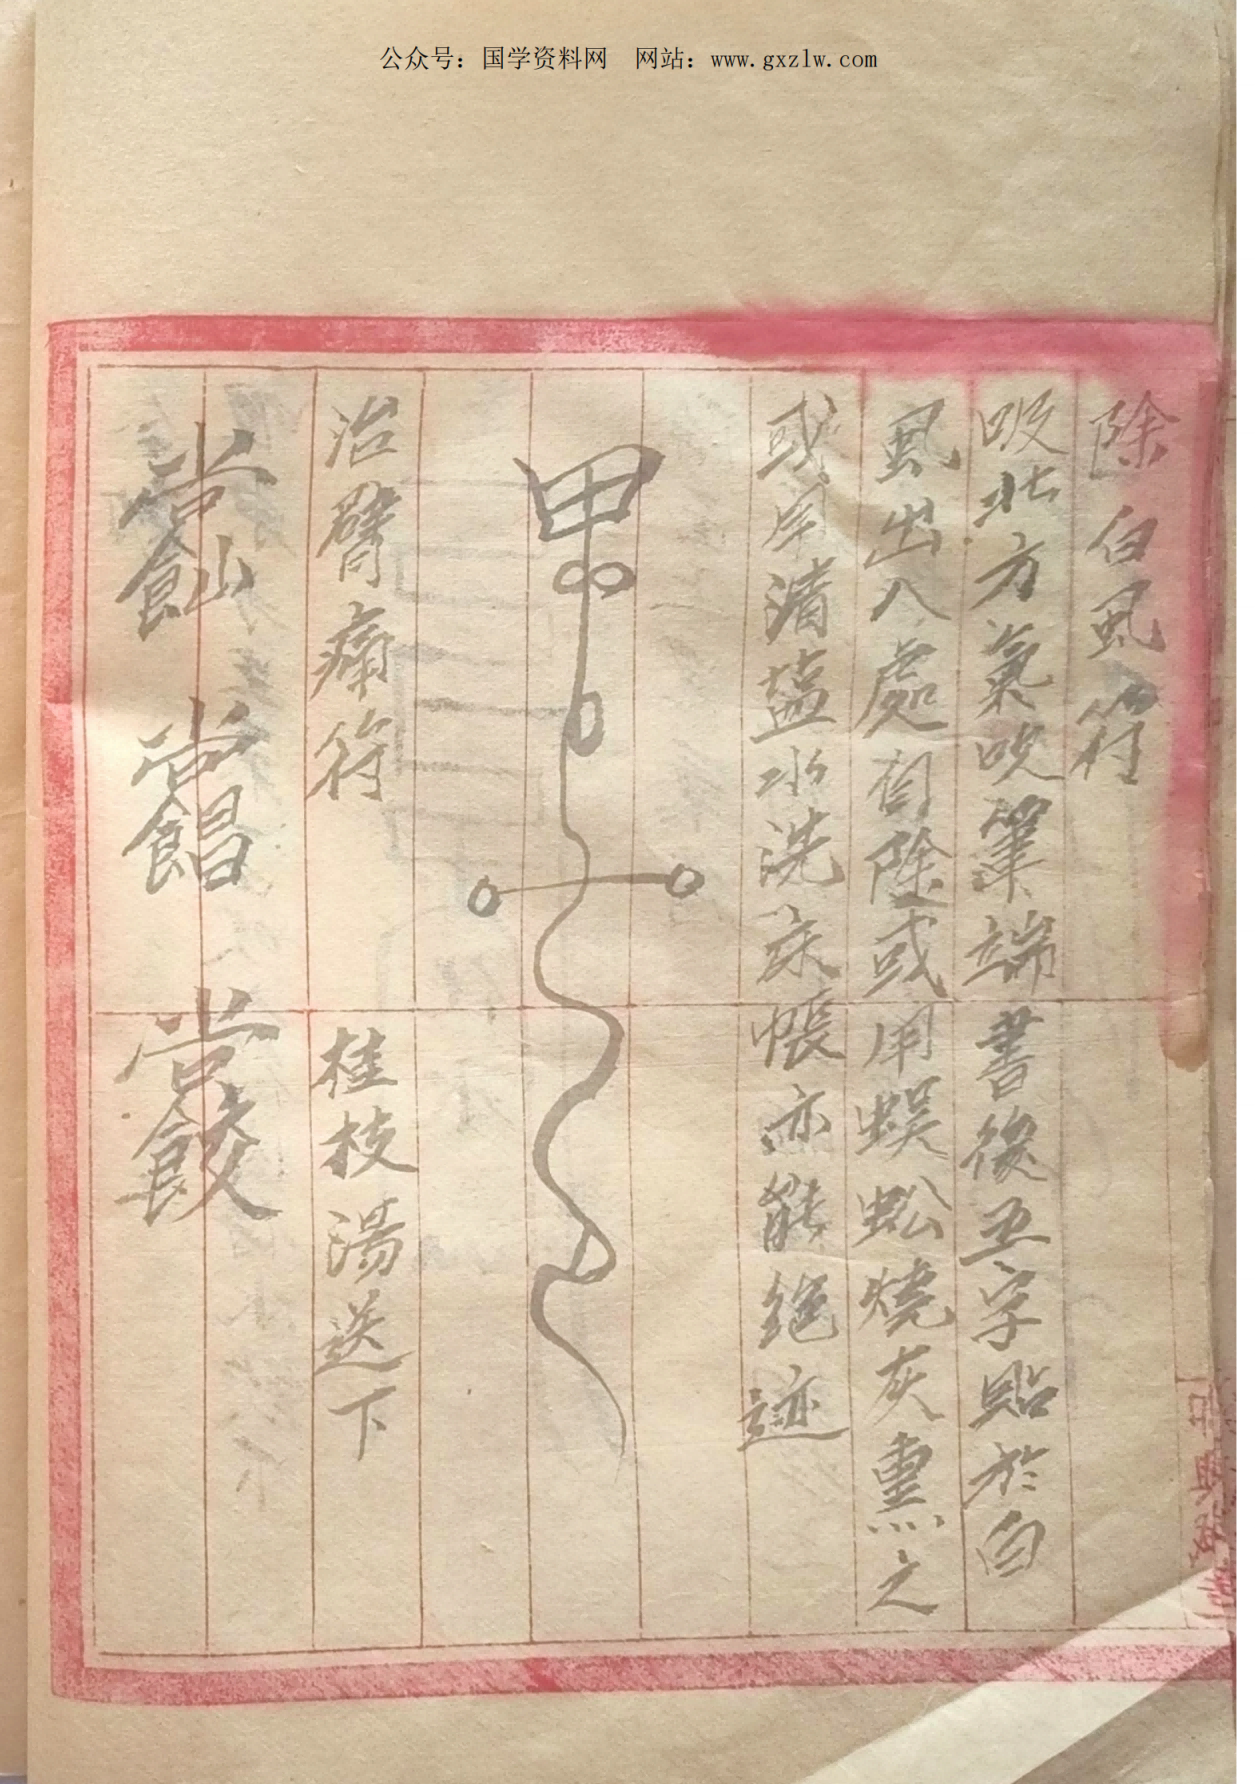 公众号：国学资料网　网站：www.gxzlw.com
除白虱符
吸北方氣吹筆端書後五字貼於白
虱出入處自除或用蜈蚣燒灰熏之
或用清盐水洗床帳亦能绝迹
治臂痛符　桂枝湯送下